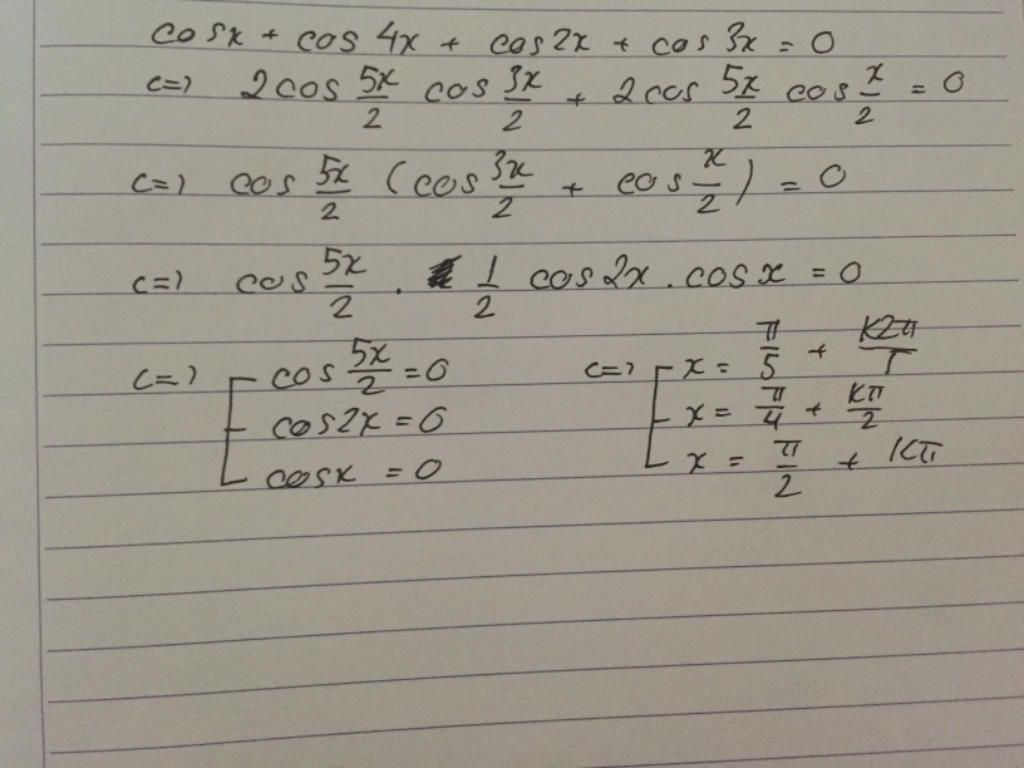 cosx + cos 4x + cos2x + cos 3x = 0
<=> 2cos 5x/2 cos 3x/2 + 2cos 5x/2 cos x/2 = 0
<=> cos 5x/2 (cos 3x/2 + cos x/2) = 0
<=> cos 5x/2 . 1/2 cos2x . cosx = 0
<=> [ cos 5x/2 = 0 <=> [ x = π/5 + k2π/5
cos2x = 0 x = π/4 + kπ/2
cosx = 0 x = π/2 + kπ